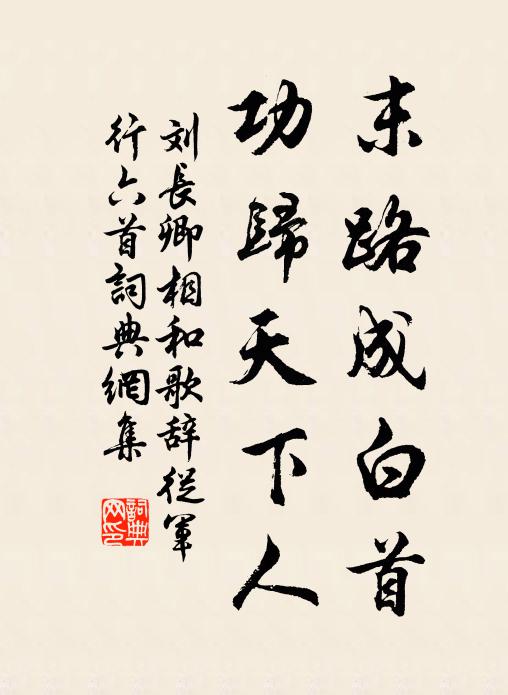 末路成白首
功歸天下人
刘長卿相和歌辞從軍
行六首詞典網集
詞典网印